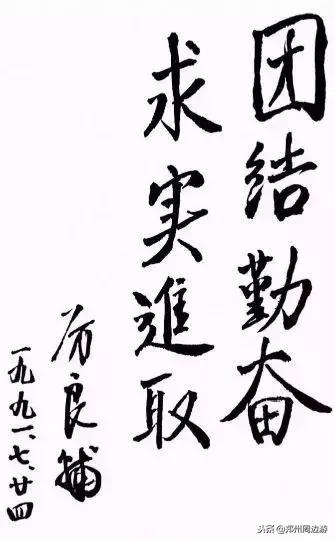 团结勤奋
求实進取
厉良辅
一九九一、七、廿四
头条 @郑州周边游